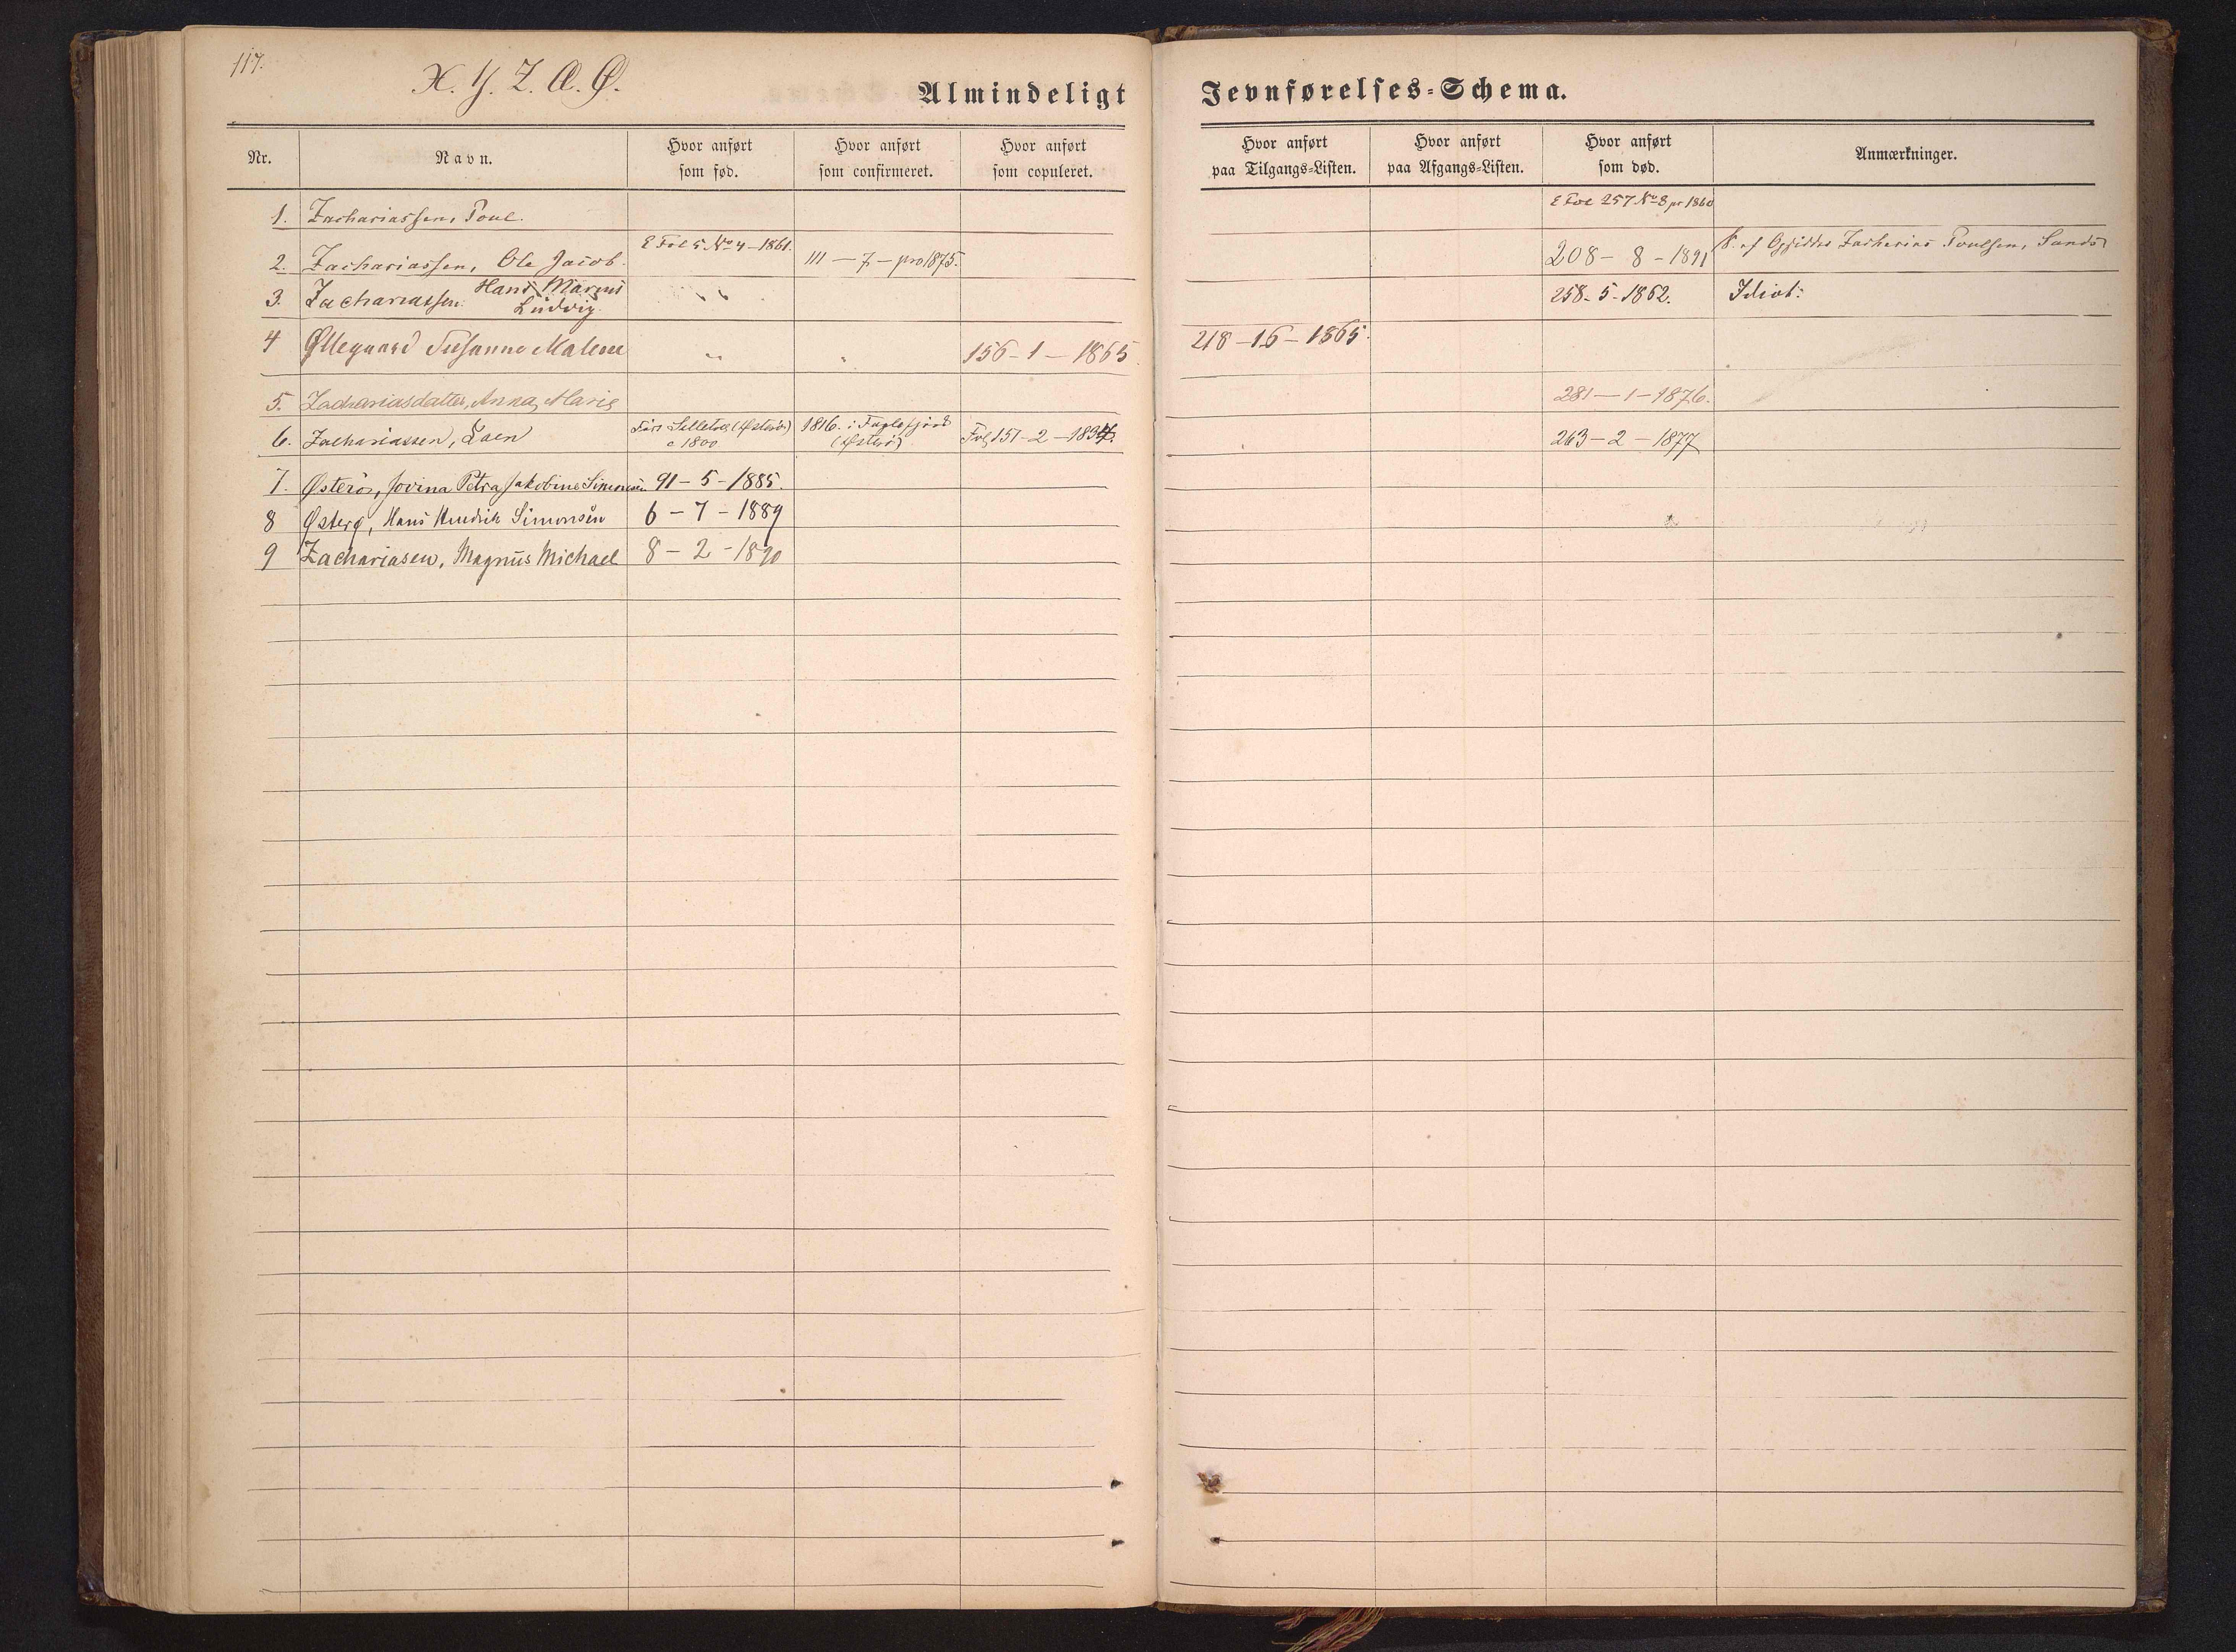 117.
X. Y. Z. Æ. Ø.
Almindeligt Jevnførelses-Schema.
Nr.
Navn.
Hvor anført som fød.
Hvor anført som confirmeret.
Hvor anført som copuleret.
Hvor anført paa Tilgangs-Listen.
Hvor anført paa Afgangs-Listen.
Hvor anført som død.
Anmærkninger.
1. Zachariassen, Poul. E Fol 257 No 8 pr 1860
2. Zachariassen, Ole Jacob. E Fol 5 No 4-1861. 111 - 7 - pro 1875. 208 - 8 - 1891 S. af Opsidder Zacharias Poulsen, Sandø
3. Zachariassen Hans Marcus Ludvig. " 258-5-1862. Idiot:
4 Øllegaard Susanne Malene " " 156-1-1865 218-16-1865.
5. Zachariasdatter, Anna Marie 281-1-1876.
6. Zachariassen, (Østerø) c 1800 1816. i Fuglefjord (Østerø) Fol 151-2-1834. 263-2-1877
7. Østerø, Jovina Petra Jakobine Simonsen 91-5-1885.
8 Østerø, Hans Hendrik Simonsen 6-7-1889
9 Zachariasen, Magnus Michael 8-2-1890